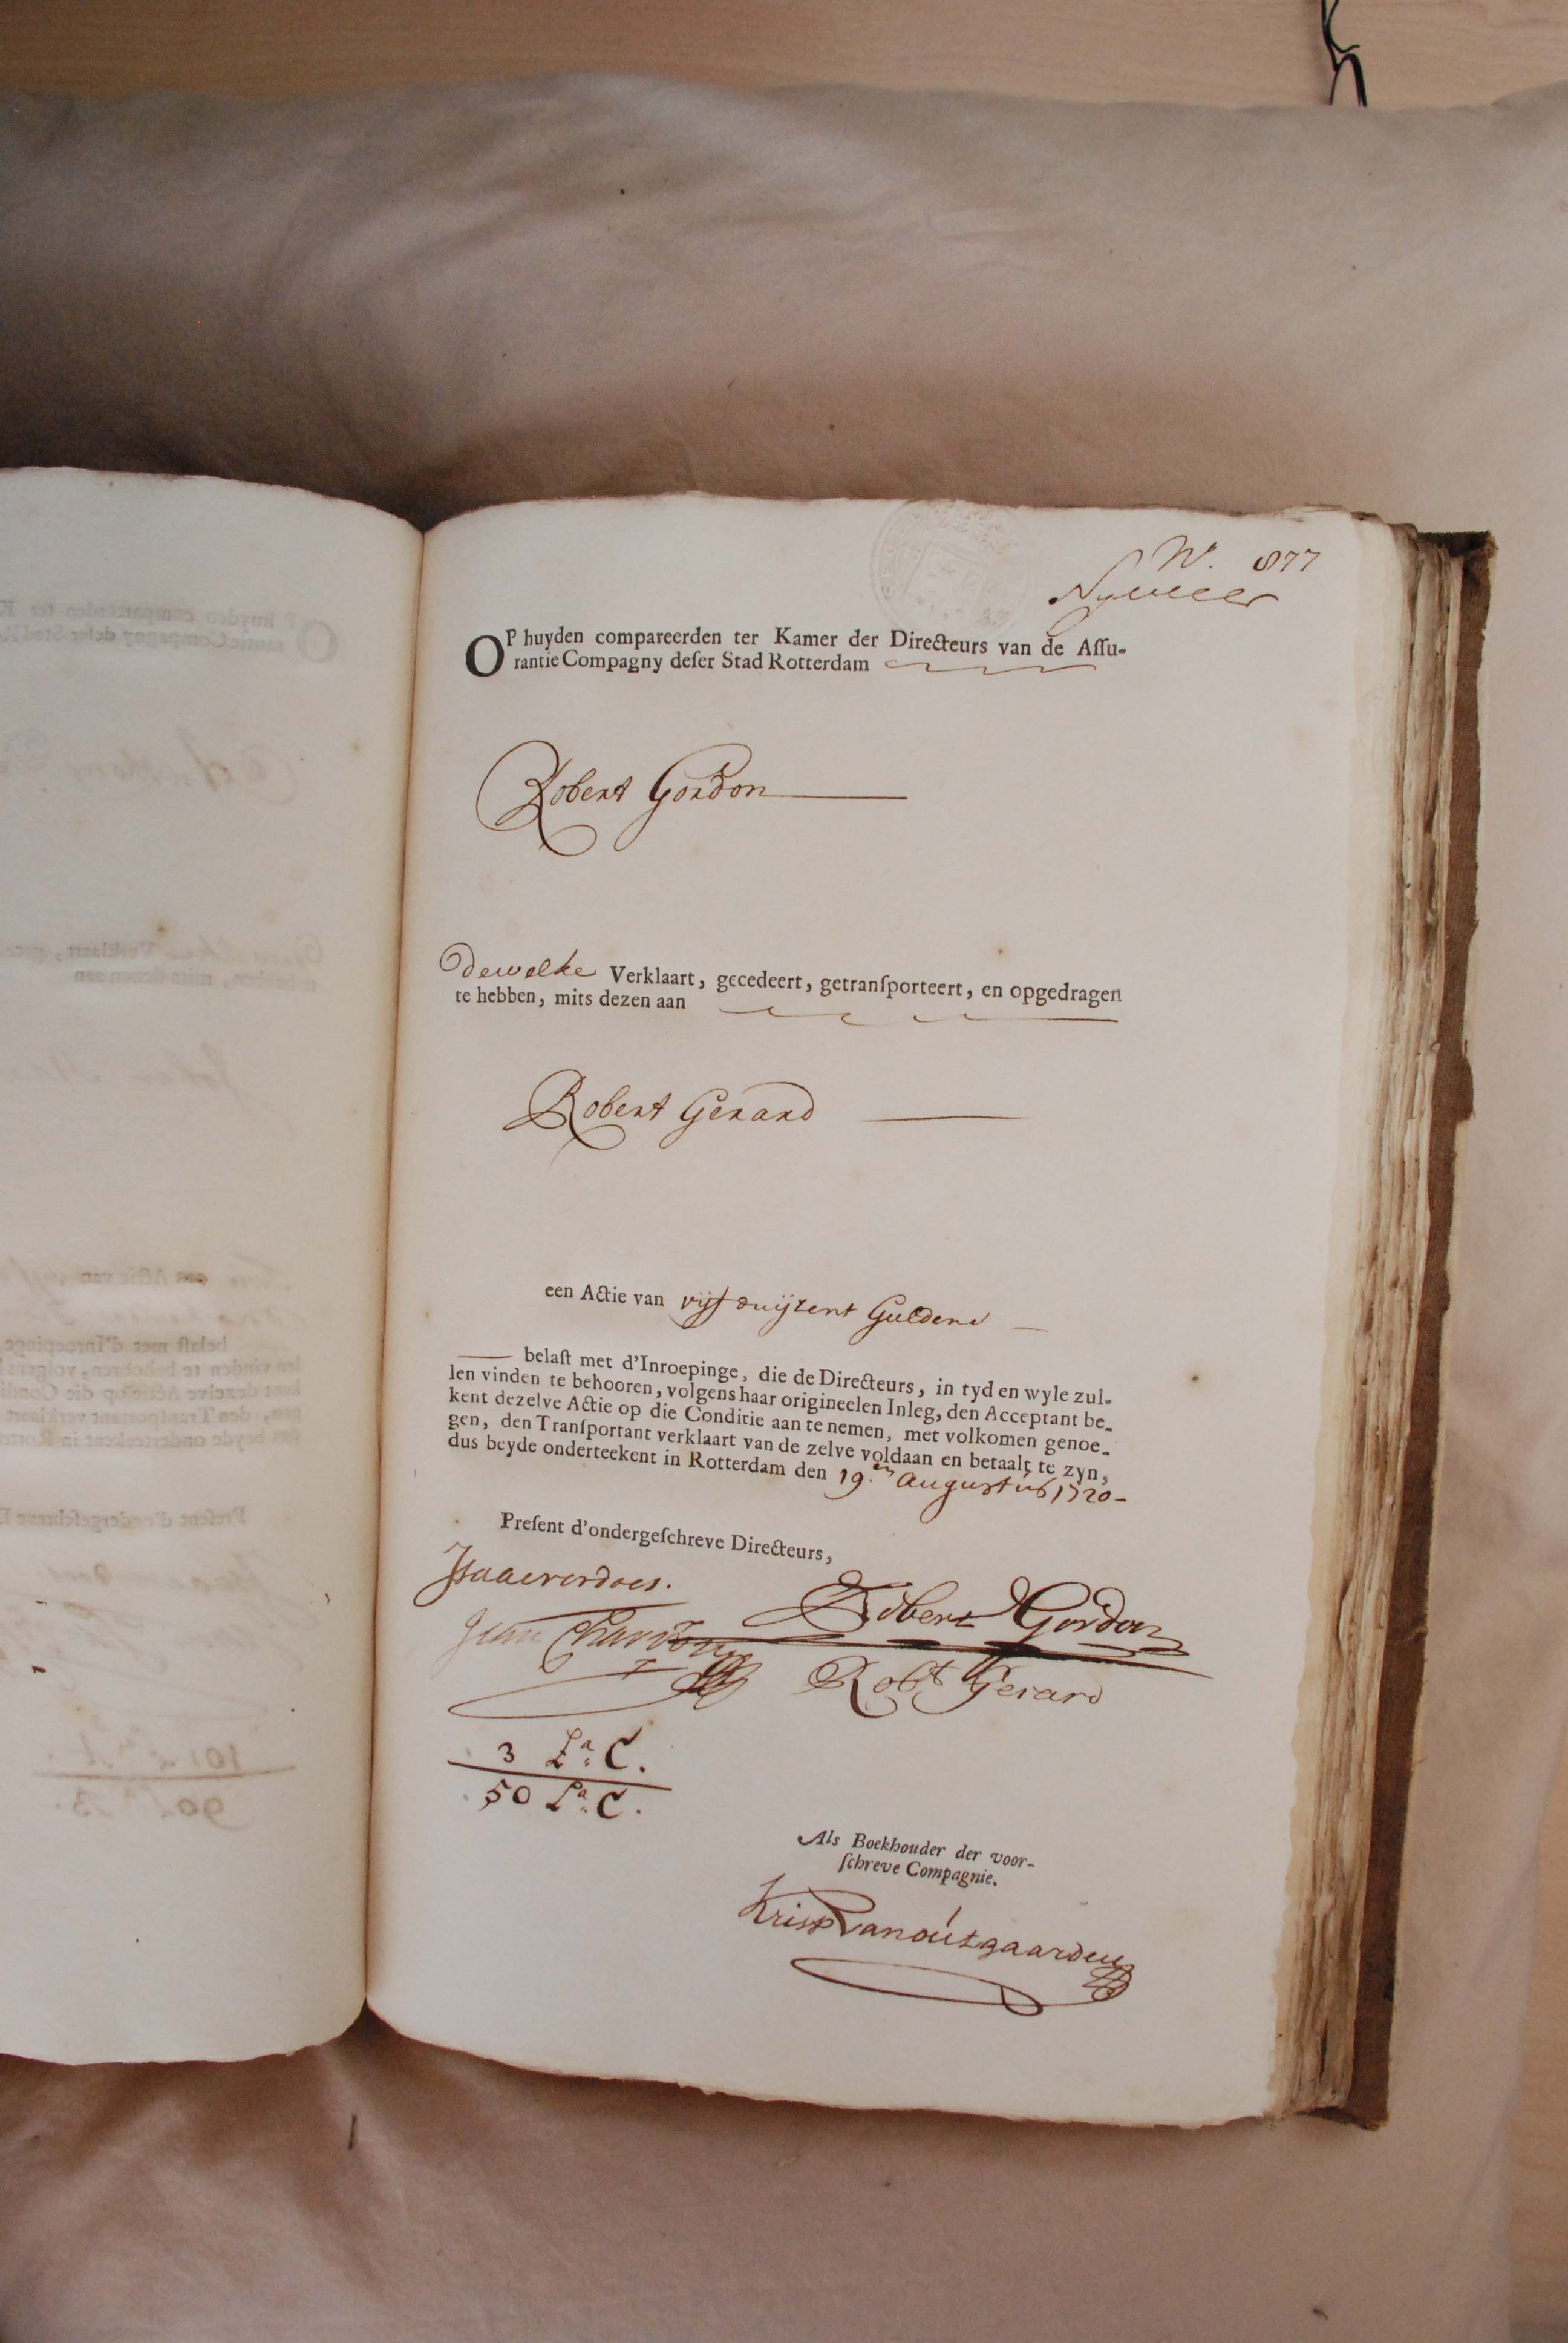 N. 877
OP huyden compareerden ter Kamer der Directeurs van de Aſſu-
rantie Compagny deſer Stad Rotterdam
Robert Gordon
Dewelke Verklaart, gecedeert, getranſporteert, en opgedragen
te hebben, mits dezen aan
Robert Gerard
een Actie van vijf duijzent Guldens
belaſt met d'Inroepinge, die de Directeurs, in tyd en wyle zul-
len vinden te behooren, volgens haar origineelen Inleg, den Acceptant be-
kent dezelve Actie op die Conditie aan te nemen, met volkomen genoe-
gen, den Tranſportant verklaart van de zelve voldaan en betaalt te zyn,
dus beyde onderteekent in Rotterdam den 19.en Augustus 1720-
Preſent d'ondergeſchreve Directeurs,
Isaacverdoes.
Robert Gordon
Jean Chardon
Robt Gerard
3 La. C.
50 La. C.
Als Boekhouder der voor-
ſchreve Compagnie.
Kris Vanoutgaarden